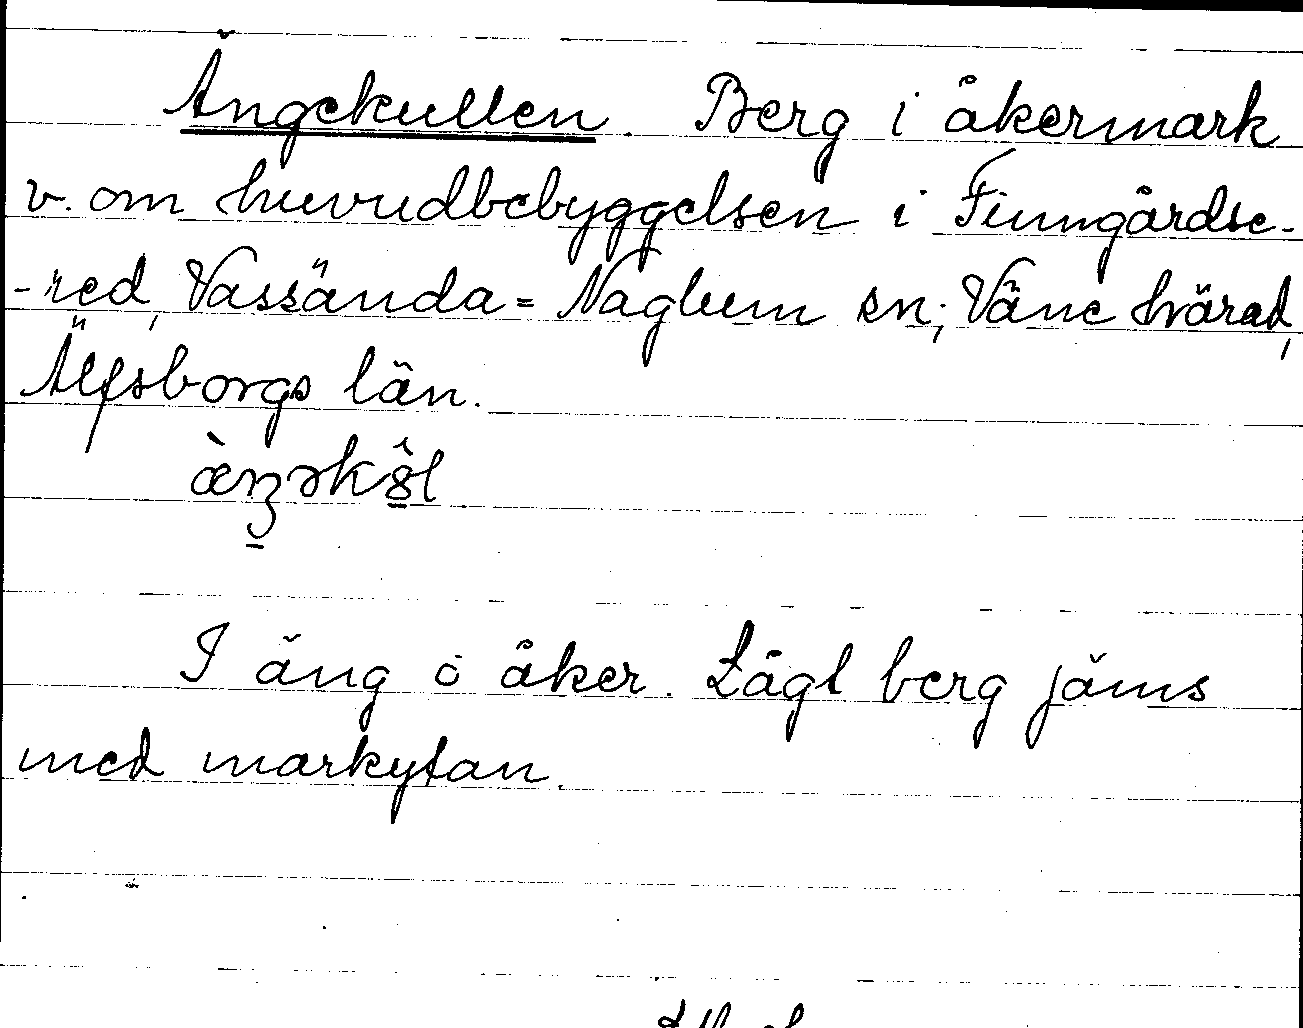 Ängekullen. Berg i åkermark
v. om huvudbebyggelsen i Finngårdse-
-red, Vassända=Naglum sn; Väne härad,
Älfsborgs län.
I äng o åker. Lågt berg jäms
med markytan.